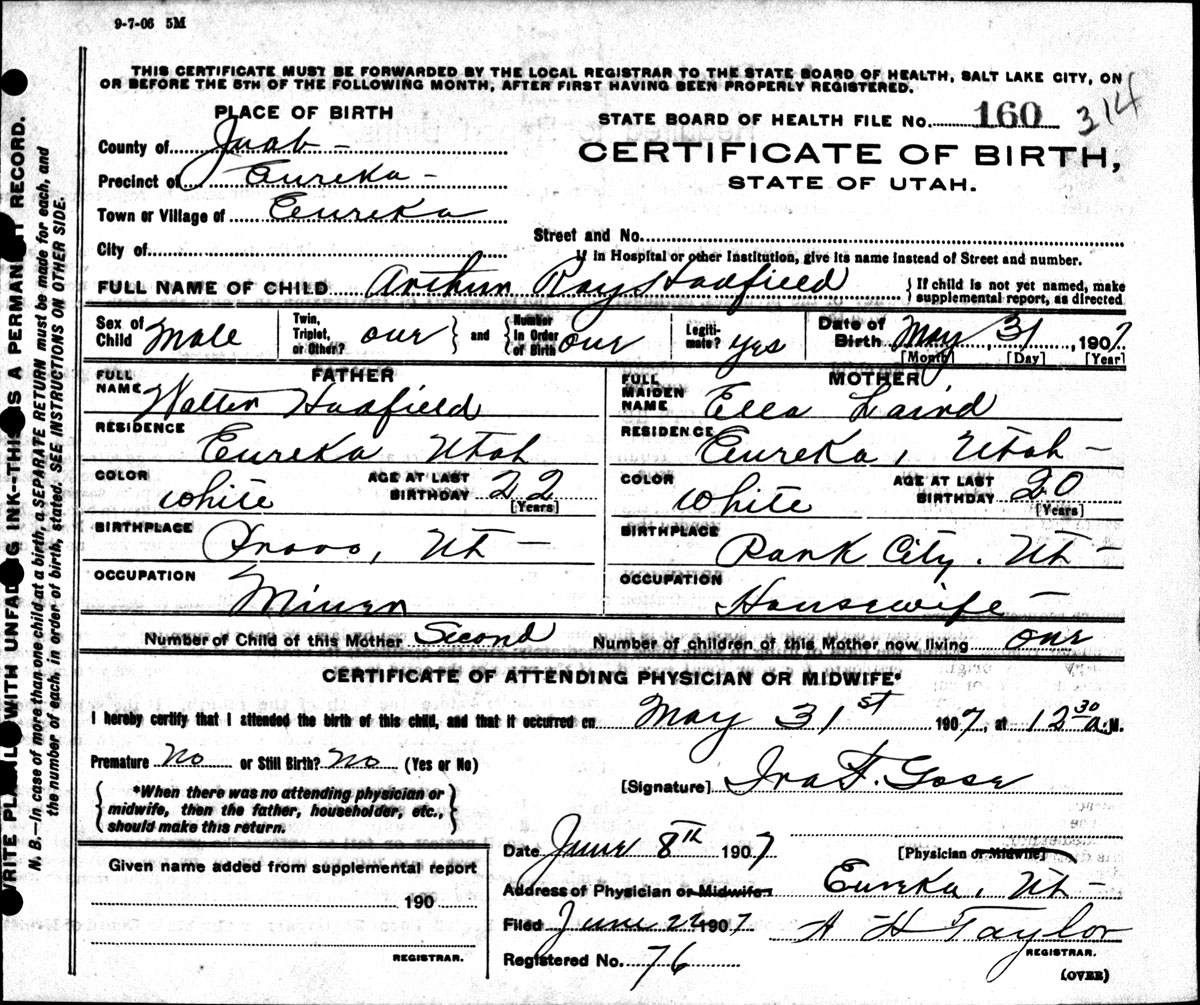 9-7-06 5M
THIS CERTIFICATE MUST BE FORWARDED BY THE LOCAL REGISTRAR TO THE STATE BOARD OF HEALTH, SALT LAKE CITY, ON
OR BEFORE THE 5TH OF THE FOLLOWING MONTH, AFTER FIRST HAVING BEEN PROPERLY REGISTERED.
PLACE OF BIRTH
STATE BOARD OF HEALTH FILE No. 160 314
County of Juab
CERTIFICATE OF BIRTH,
Precinct of Eureka
STATE OF UTAH.
Town or Village of Eureka
Street and No.
City of
If in Hospital or other Institution, give its name instead of Street and number.
FULL NAME OF CHILD Arthur Ray Hadfield { If child is not yet named, make supplemental report, as directed
Sex of Child Male Twin, Triplet, or Other? one } and { Number in Order of Birth one Legitimate? yes Date of Birth May 31, 1907
[Month] [Day] [Year]
FATHER
MOTHER
FULL NAME Walter Hadfield
FULL MAIDEN NAME Ella Laird
RESIDENCE Eureka Utah
RESIDENCE Eureka, Utah
COLOR white AGE AT LAST BIRTHDAY 22 [Years]
COLOR white AGE AT LAST BIRTHDAY 20 [Years]
BIRTHPLACE Provo, Ut
BIRTHPLACE Park City, Ut
OCCUPATION Miner
OCCUPATION Housewife
Number of Child of this Mother Second Number of children of this Mother now living one
CERTIFICATE OF ATTENDING PHYSICIAN OR MIDWIFE*
I hereby certify that I attended the birth of this child, and that it occurred on May 31st 1907, at 12 30 a.M.
Premature No or Still Birth? No (Yes or No)
[Signature] Ira F. Gose
{ *When there was no attending physician or
midwife, then the father, householder, etc.,
should make this return. }
Date June 8TH 1907 [Physician or Midwife]
Given name added from supplemental report
190
REGISTRAR.
Address of Physician or Midwife Eureka, Ut
Filed June 22 1907 A H Taylor
REGISTRAR.
Registered No. 76
(OVER)
WRITE PLAINLY WITH UNFADING INK--THIS IS A PERMANENT RECORD.
N. B.—In case of more than one child at a birth, a SEPARATE RETURN must be made for each, and
the number of each, in order of birth, stated. SEE INSTRUCTIONS ON OTHER SIDE.